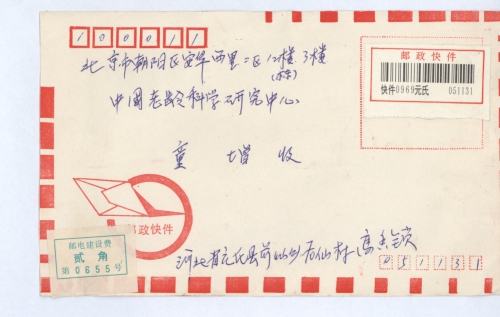 100011
北京市朝阳区安华西里二区12楼3楼
中国老龄科学研究中心
童 增 收
邮政快件
快件0969元氏 051131
邮政快件
邮电建设费
贰角
第0655号
河北省元氏县前仙乡
051131